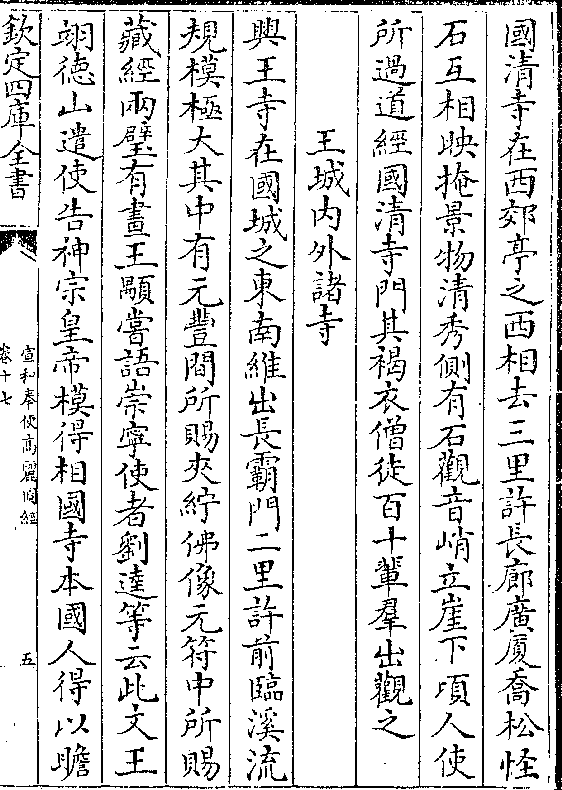 國清寺在西郊亭之西相去三里許長廊廣廈喬松怪
石互相映掩景物清秀側有石觀音峭立崖下頃人使
所過道經國清寺門其褐衣僧徒百十輩羣出觀之
王城內外諸寺
興王寺在國城之東南維出長霸門二里許前臨溪流
規模極大其中有元豐間所賜夾紵佛像元符中所賜
藏經兩壁有畫王顒嘗語崇寧使者劉逵等云此文王
翊徳山遣使告神宗皇帝模得相國寺本國人得以瞻
欽定四庫全書
宣和奉使高麗圖經
卷十七
五